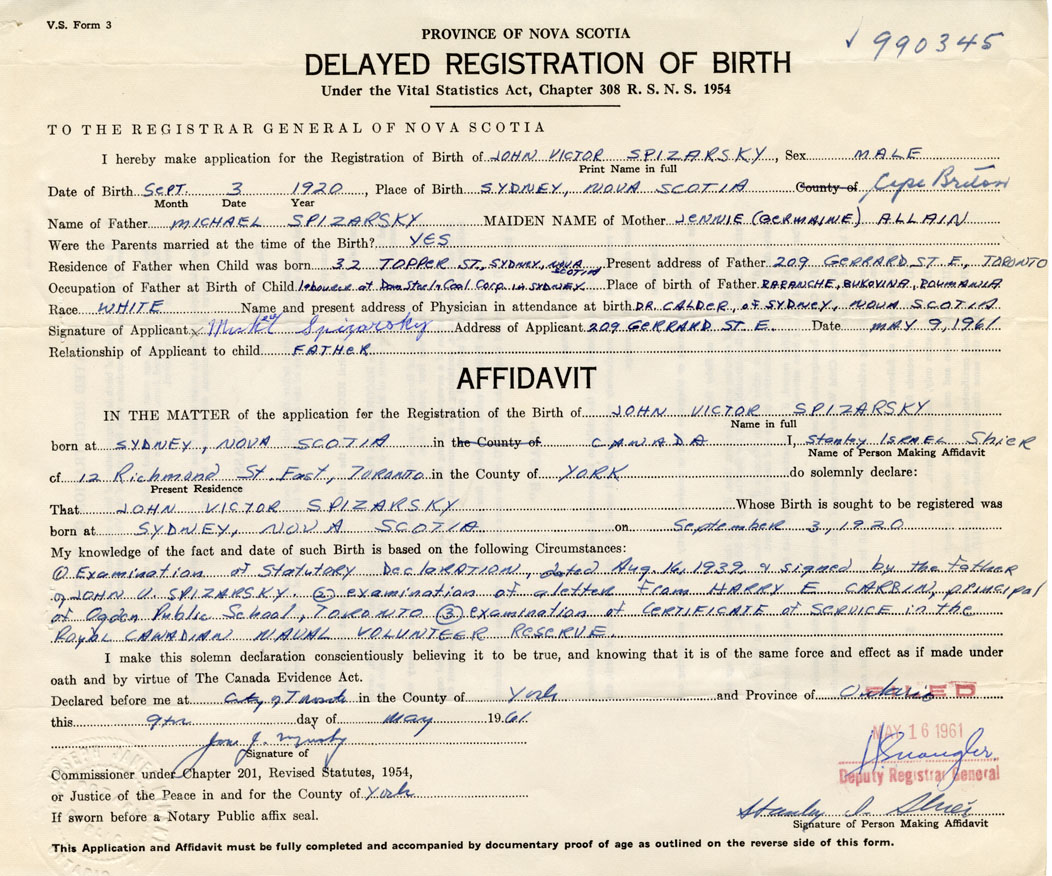 V.S. Form 3
PROVINCE OF NOVA SCOTIA
√ 990345
DELAYED REGISTRATION OF BIRTH
Under the Vital Statistics Act, Chapter 308 R. S. N. S. 1954
TO THE REGISTRAR GENERAL OF NOVA SCOTIA
I hereby make application for the Registration of Birth of JOHN VICTOR SPIZARSKY, Sex MALE
Print Name in full
Date of Birth SEPT. 3 1920, Place of Birth SYDNEY, NOVA SCOTIA County of Cape Breton
Month Date Year
Name of Father MICHAEL SPIZARSKY MAIDEN NAME of Mother JENNIE (GERMAINE) ALLAIN
Were the Parents married at the time of the Birth? YES
Residence of Father when Child was born 32 TOPPER ST., SYDNEY, NOVA SCOTIA Present address of Father 209 GERRARD ST E., TORONTO
Occupation of Father at Birth of Child labourer at Dom Steel & Coal Corp. in SYDNEY Place of birth of Father RARANCHE, BUKOVINA, ROUMANIA
Race WHITE Name and present address of Physician in attendance at birth DR. CALDER, of SYDNEY, NOVA SCOTIA
Signature of Applicant x Spizarsky Address of Applicant 209 GERRARD ST E. Date MAY 9, 1961
Relationship of Applicant to child FATHER
AFFIDAVIT
IN THE MATTER of the application for the Registration of the Birth of JOHN VICTOR SPIZARSKY
Name in full
born at SYDNEY, NOVA SCOTIA in the County of CANADA I, Stanley ISRAEL Shier
Name of Person Making Affidavit
of 12 Richmond St East, TORONTO in the County of YORK do solemnly declare:
Present Residence
That JOHN VICTOR SPIZARSKY Whose Birth is sought to be registered was
born at SYDNEY, NOVA SCOTIA on September 3, 1920
My knowledge of the fact and date of such Birth is based on the following Circumstances:
① Examination of Statutory DECLARATION, dated Aug 16, 1939 & signed by the father
of JOHN V. SPIZARSKY. ② examination of a letter from HARRY E CARBIN, principal
of Ogden Public School, TORONTO ③ examination of CERTIFICATE of SERVICE in the
ROYAL CANADIAN NAVAL VOLUNTEER RESERVE.
I make this solemn declaration conscientiously believing it to be true, and knowing that it is of the same force and effect as if made under
oath and by virtue of The Canada Evidence Act.
Declared before me at City of Toronto in the County of York and Province of Ontario
FILED
this 9th day of May 1961.
MAY 16 1961
Signature of
Deputy Registrar General
Commissioner under Chapter 201, Revised Statutes, 1954,
or Justice of the Peace in and for the County of York
Stanley I. Shier
If sworn before a Notary Public affix seal.
Signature of Person Making Affidavit
This Application and Affidavit must be fully completed and accompanied by documentary proof of age as outlined on the reverse side of this form.